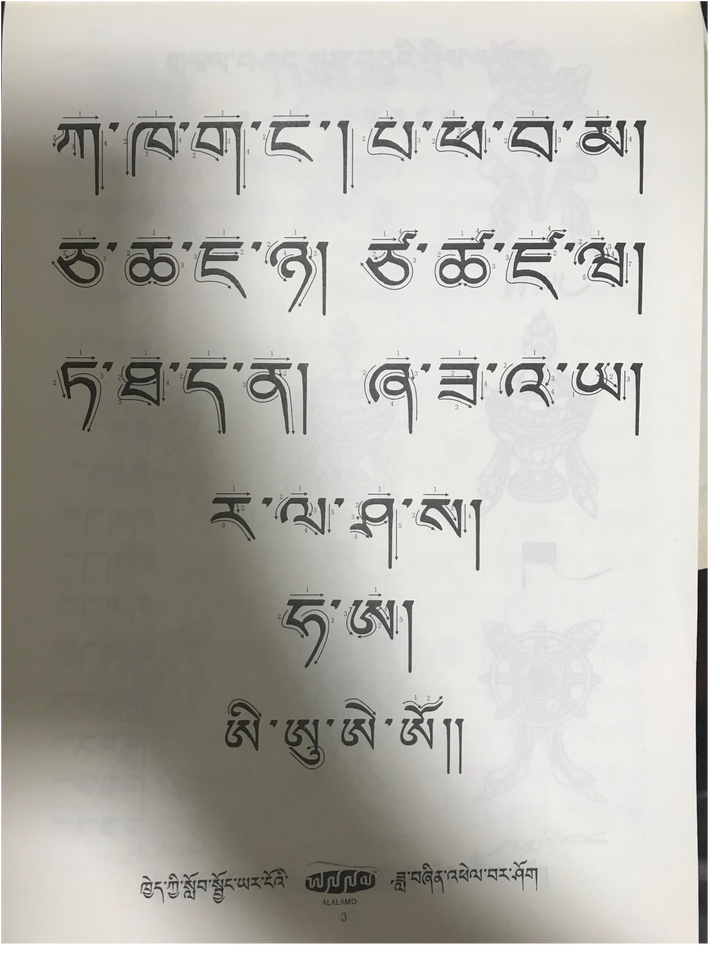 ཀ་ཁ་ག་ང་། པ་ཕ་བ་མ།
ཅ་ཆ་ཇ་ཉ། ཙ་ཚ་ཛ་ཝ།
ཏ་ཐ་ད་ན། ཞ་ཟ་འ་ཡ།
ར་ལ་ཤ་ས།
ཧ་ཨ།
ཨི་ཨུ་ཨེ་ཨོ།།
ཁྱེད་ཀྱི་སློབ་སྦྱོང་ཡར་ངོའི་ ཟླ་བཞིན་འཕེལ་བར་ཤོག
ALALAMO
3